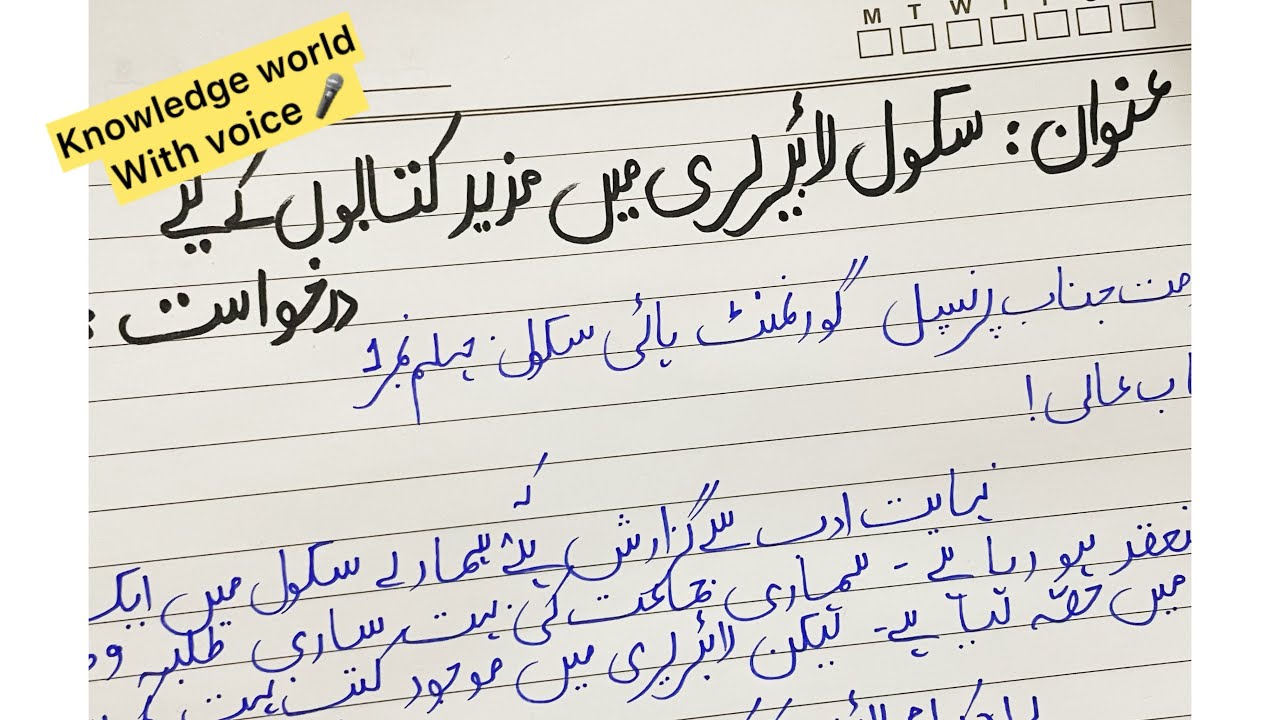 M T W T F S
Knowledge world
With voice 🎤
عنوان: سکول لائبریری میں مزید کتابوں کے لیے
درخواست:
جناب پرنسپل گورنمنٹ ہائی سکول جہلم نمبر 1
عالی!
نہایت ادب سے گزارش ہے کہ ہمارے سکول میں ایک
ہو رہا ہے۔ ہماری جماعت کی بہت ساری طلبہ
میں حصہ لیا ہے۔ لیکن لائبریری میں موجود کتب بہت